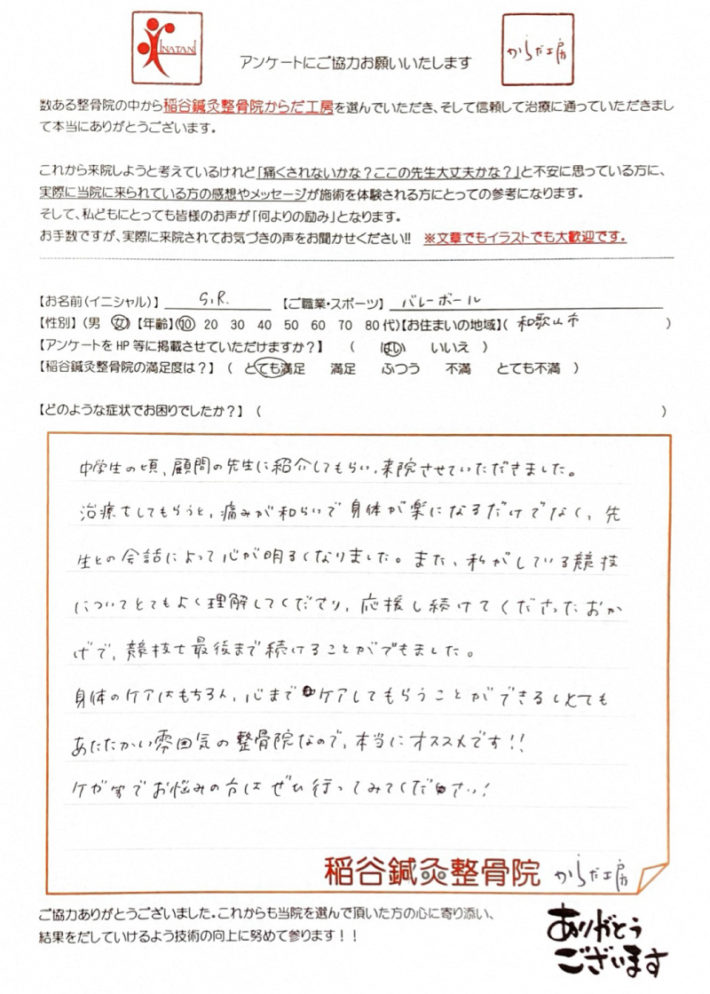 INATANI
からだ工房
アンケートにご協力お願いいたします
数ある整骨院の中から稲谷鍼灸整骨院からだ工房を選んでいただき、そして信頼して治療に通っていただきまし
て本当にありがとうございます。
これから来院しようと考えているけれど「痛くされないかな？ここの先生大丈夫かな？」と不安に思っている方に、
実際に当院に来られている方の感想やメッセージが施術を体験される方にとっての参考になります。
そして、私どもにとっても皆様のお声が「何よりの励み」となります。
お手数ですが、実際に来院されてお気づきの声をお聞かせください!! ※文章でもイラストでも大歓迎です。
【お名前(イニシャル)】 S.R. 【ご職業・スポーツ】 バレーボール
【性別】(男 女)【年齢】(10 20 30 40 50 60 70 80代)【お住まいの地域】( 和歌山市 )
【アンケートをHP等に掲載させていただけますか？】 ( はい いいえ )
【稲谷鍼灸整骨院の満足度は？】 ( とても満足 満足 ふつう 不満 とても不満 )
【どのような症状でお困りでしたか？】 ( )
中学生の頃、顧問の先生に紹介してもらい、来院させていただきました。
治療をしてもらうと、痛みが和らいで身体が楽になるだけでなく、先
生との会話によって心が明るくなりました。また、私がしている競技
についてとてもよく理解してくださり、応援し続けてくださったおか
げで、競技を最後まで続けることができました。
身体のケアはもちろん、心までケアしてもらうことができるしとても
あたたかい雰囲気の整骨院なので、本当にオススメです!!
ケガ等でお悩みの方はぜひ行ってみてください!
稲谷鍼灸整骨院 からだ工房
ご協力ありがとうございました。これからも当院を選んで頂いた方の心に寄り添い、
結果をだしていけるよう技術の向上に努めて参ります！！
ありがとう
ございます